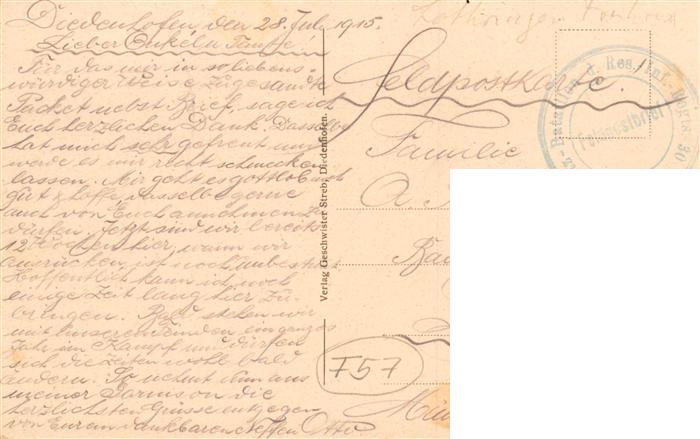 Diedenhofen den 28. Juli 1915.
Lieber Onkel u Tante
Für das mir in so liebens-
würdiger Weise zugesandte
Packet nebst Brief, sage ich
Euch herzlichen Dank. Dasselbe
hat mich sehr gefreut und
werde es mir recht schmecken
lassen. Mir geht es gottlob noch
gut & hoffe, dasselbe gerne
auch von Euch annehmen zu
dürfen. Jetzt sind wir bereits
12 Wochen hier, wann wir
ausrücken, ist noch unbestimmt
Hoffentlich kann ich noch
einige Zeit lang hier zu-
bringen. Bald stehen wir
mit unseren Feinden ein ganzes
Jahr im Kampf und dürfen
sich die Zeiten wohl bald
ändern. So nehmt nun aus
meiner Garnison die
herzlichsten Grüsse entgegen
von Eurem dankbaren Neffen Otto.
Verlag Geschwister Streb, Diedenhofen.
Lothringen
Feldpostkarte.
Familie
A.
F57
Bataillon d. Res. Inf. Regts. 30